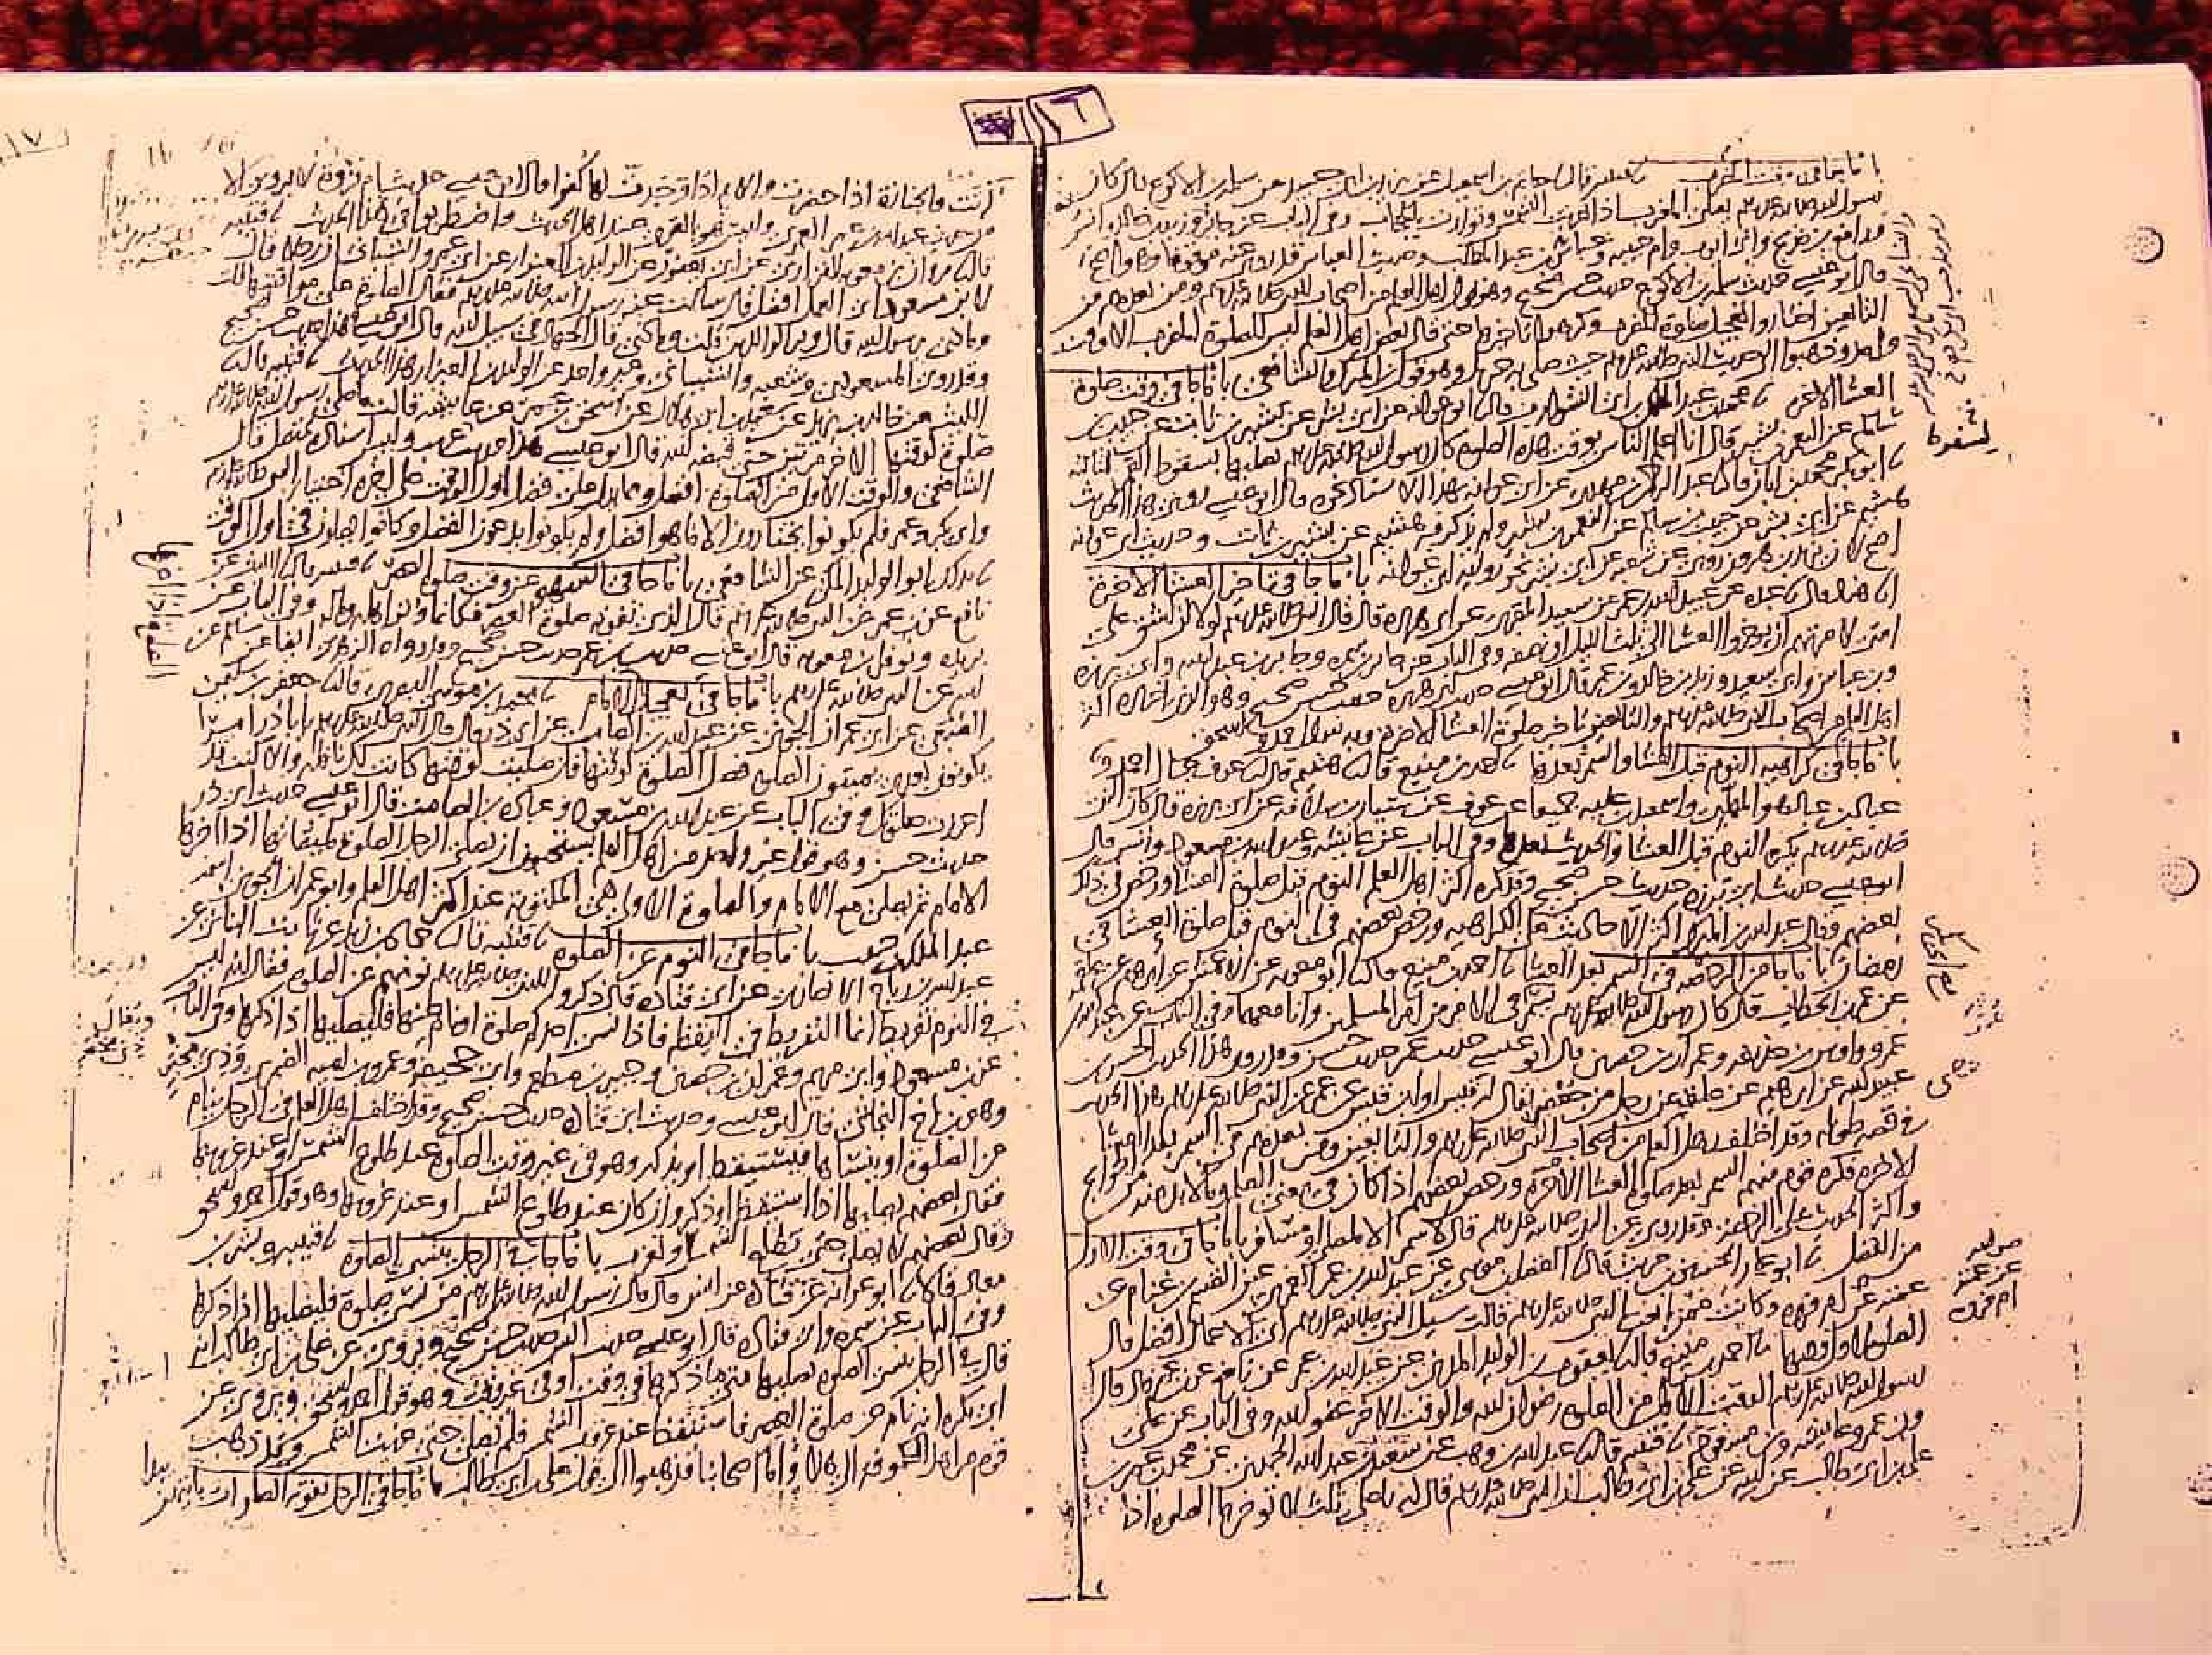 باب ما جا في وقت المغرب قتيبة قال حاتم بن اسمعيل عن يزيد بن ابي عبيد عن سلمة بن الاكوع قال كان
رسول الله صلى الله عليه وسلم يصلي المغرب اذا غربت الشمس وتوارت بالحجاب وفي الباب عن جابر وزيد بن خالد وانس
ورافع بن خديج وابي ايوب وام حبيبه وعباس بن عبد المطلب وحديث العباس قد روي عنه موقوفا وهو اصح
قال ابو عيسى حديث سلمة بن الاكوع حديث حسن صحيح وهو قول اهل العلم من اصحاب النبي صلى الله عليه وسلم ومن بعدهم من
التابعين اختاروا تعجيل صلوة المغرب وكرهوا تاخيرها حتى قال بعض اهل العلم ليس لصلوة المغرب الا وقت
واحد وذهبوا الى حديث النبي صلى الله عليه وسلم حيث صلى به جبريل وهو قول ابن المبارك والشافعي باب ما جا في وقت صلوة
العشا الاخرة محمد بن عبد الملك بن ابي الشوارب قال ابو عوانه عن ابي بشر عن بشير بن ثابت عن حبيب بن
سالم عن النعمن بن بشير قال انا اعلم الناس بوقت هذه الصلوة كان رسول الله صلى الله عليه وسلم يصليها لسقوط القمر لثالثة
ابو بكر محمد بن ابان قال عبد الرحمن بن مهدي عن ابي عوانه بهذا الاسناد نحوه قال ابو عيسى روى هذا الحديث
هشيم عن ابي بشر عن حبيب بن سالم عن النعمن بن بشير ولم يذكر فيه هشيم عن بشير بن ثابت وحديث ابي عوانه
اصح لان يزيد بن هرون روى عن شعبه عن ابي بشر نحو رواية ابي عوانه باب ما جا في تاخير العشا الاخرة
هناد قال عبده عن عبيد الله بن عمر عن سعيد المقبري عن ابي هريرة قال قال النبي صلى الله عليه وسلم لولا ان اشق على
امتي لامرتهم ان يؤخروا العشا الى ثلث الليل او نصفه وفي الباب عن جابر بن سمرة وجابر بن عبد الله وابي برزه
وبن عباس وابي سعيد وزيد بن خالد وبن عمر قال ابو عيسى حديث ابي هريرة حديث حسن صحيح وهو الذي اختاره اكثر
اهل العلم من اصحاب النبي صلى الله عليه وسلم والتابعين تاخير صلوة العشا الاخرة وبه يقول احمد واسحق
باب ما جا في كراهية النوم قبل العشا والسمر بعدها احمد بن منيع قال هشيم قال عوف قال احمد و
عباد بن عباد هو المهلبي واسمعيل بن عليه جميعا عن عوف عن سيار بن سلامة عن ابي برزة قال كان النبي
صلى الله عليه وسلم يكره النوم قبل العشا والحديث بعدها وفي الباب عن عايشه وعبد الله بن مسعود وانس قال
ابو عيسى حديث ابي برزة حديث حسن صحيح وقد كره اكثر اهل العلم النوم قبل صلوة العشا ورخص في ذلك
بعضهم وقال عبد الله بن المبارك اكثر الاحاديث على الكراهية ورخص بعضهم في النوم قبل صلوة العشا في
رمضان باب ما جا من الرخصه في السمر بعد العشا احمد بن منيع قال ابو معويه عن الاعمش عن ابرهيم عن علقمة
عن عمر بن الخطاب قال كان رسول الله صلى الله عليه وسلم يسمر مع ابي بكر في الامر من امر المسلمين وانا معهما وفي الباب عن عبد الله بن
عمرو واوس بن حذيفه وعمران بن حصين قال ابو عيسى حديث عمر حديث حسن وقد روى هذا الحديث الحسن بن
عبيد الله عن ابرهيم عن علقمه عن رجل من جعفي يقال له قيس او ابن قيس عن عمر عن النبي صلى الله عليه وسلم هذا الحديث
في قصه طويله وقد اختلف اهل العلم من اصحاب النبي صلى الله عليه وسلم والتابعين ومن بعدهم في السمر بعد العشا
الاخرة فكره قوم منهم السمر بعد صلوة العشا الاخرة ورخص بعضهم اذا كان في معنى العلم وما لا بد منه من الحوايج
واكثر الحديث على الرخصة وقد روي عن النبي صلى الله عليه وسلم قال لا سمر الا لمصل او مسافر باب ما جا في وقت الاول
من الفضل ابو عمار الحسين بن حريث قال الفضل بن موسى عن عبد الله بن عمر العمري عن القسم بن غنام عن
عمته ام فروه وكانت ممن بايعت النبي صلى الله عليه وسلم قالت سيل النبي صلى الله عليه وسلم اي الاعمال افضل قال
الصلوة لاول وقتها احمد بن منيع قال يعقوب بن الوليد المدني عن عبد الله بن عمر عن نافع عن بن عمر قال قال
رسول الله صلى الله عليه وسلم الوقت الاول من الصلوة رضوان الله والوقت الاخر عفو الله وفي الباب عن علي
وبن عمر وعايشه وبن مسعود قتيبه قال عبد الله بن وهب عن سعيد بن عبد الله الجهني عن محمد بن عمر بن
علي بن ابي طالب عن ابيه عن علي بن ابي طالب ان النبي صلى الله عليه وسلم قال له يا علي ثلث لا تؤخرها الصلوة اذا
لسقوط
مع ابي بكر
صح
عن عمته
ام فروه
آنت والجنازة اذا حضرت والايم اذا وجدت لها كفوا قال ابو عيسى حديث ام فروة لا يروى الا
من حديث عبد الله بن عمر العمري وليس هو بالقوي عند اهل الحديث واضطربوا في هذا الحديث قتيبه
قال مروان بن معويه الفزاري عن ابي يعفور عن الوليد بن العيزار عن ابي عمرو الشيباني ان رجلا قال
لابن مسعود اي العمل افضل قال سالت عنه رسول الله صلى الله عليه وسلم فقال الصلوة على مواقيتها قلت
وماذا يا رسول الله قال وبر الوالدين قلت وماذا قال الجهاد في سبيل الله قال ابو عيسى هذا حديث حسن صحيح
وقد روى المسعودي وشعبه والشيباني وغير واحد عن الوليد بن العيزار هذا الحديث قتيبه قال
الليث عن خالد بن يزيد عن سعيد بن ابي هلال عن اسحق بن عمر عن عايشه قالت ما صلى رسول الله صلى الله عليه وسلم
صلوة لوقتها الاخر مرتين حتى قبضه الله قال ابو عيسى هذا حديث غريب وليس اسناده بمتصل قال
الشافعي والوقت الاول من الصلوة افضل ومما يدل على فضل اول الوقت على اخره اختيار النبي صلى الله عليه وسلم
وابي بكر وعمر فلم يكونوا يختارون الا ما هو افضل ولم يكونوا يدعون الفضل وكانوا يصلون في اول الوقت
بذلك ابو الوليد المكي عن الشافعي باب ما جا في السهو عن وقت صلوة العصر قتيبه قال الليث عن
نافع عن بن عمر عن النبي صلى الله عليه وسلم قال الذي تفوته صلوة العصر فكانما وتر اهله وماله وفي الباب عن
بريده ونوفل بن معويه قال ابو عيسى حديث بن عمر حديث حسن صحيح وقد رواه الزهري ايضا عن سالم عن
ابيه عن النبي صلى الله عليه وسلم باب ما جا في تعجيل الصلوة اذا اخرها الامام محمد بن موسى البصري قال جعفر بن سليمن
الضبعي عن ابي عمران الجوني عن عبد الله بن الصامت عن ابي ذر قال قال النبي صلى الله عليه وسلم يا ابا ذر امرا
يكونون بعدي يميتون الصلوة فصل الصلوة لوقتها فان صليت لوقتها كانت لك نافلة والا كنت قد
احرزت صلوتك وفي الباب عن عبد الله بن مسعود وعبادة بن الصامت قال ابو عيسى حديث ابي ذر
حديث حسن وهو قول غير واحد من اهل العلم يستحبون ان يصلي الرجل الصلوة لميقاتها اذا اخرها
الامام ثم يصلي مع الامام والصلوة الاولى هي المكتوبة عند اكثر اهل العلم وابو عمران الجوني اسمه
عبد الملك بن حبيب باب ما جا في النوم عن الصلوة قتيبه قال حماد بن زيد عن ثابت البناني عن
عبد الله بن رباح الانصاري عن ابي قتادة قال ذكروا للنبي صلى الله عليه وسلم نومهم عن الصلوة فقال انه ليس
في النوم تفريط انما التفريط في اليقظه فاذا نسي احدكم صلوة او نام عنها فليصلها اذا ذكرها وفي الباب
عن بن مسعود وابي مريم وعمران بن حصين وجبير بن مطعم وابي جحيفه وعمرو بن اميه الضمري وذي مخبر
وهو بن اخي النجاشي قال ابو عيسى وحديث ابي قتادة حديث حسن صحيح وقد اختلف اهل العلم في الرجل ينام
عن الصلوة او ينساها فيستيقظ او يذكر وهو في غير وقت الصلوة عند طلوع الشمس او عند غروبها
فقال بعضهم يصليها اذا استيقظ او ذكر وان كان عند طلوع الشمس او عند غروبها وهو قول احمد واسحق
وقال بعضهم لا يصلي حتى تطلع الشمس او تغرب باب ما جا في الرجل ينسى الصلوة قتيبه وبشر بن
معاذ قالا ابو عوانه عن قتادة عن انس قال قال رسول الله صلى الله عليه وسلم من نسي صلوة فليصلها اذا ذكرها
وفي الباب عن سمره وابي قتادة قال ابو عيسى حديث انس حديث حسن صحيح ويروى عن علي بن ابي طالب انه
قال في الرجل ينسى الصلوة يصليها متى ما ذكرها في وقت او في غير وقت وهو قول احمد واسحق ويروى عن
ابي بكره انه نام عن صلوة العصر فاستيقظ عند غروب الشمس فلم يصل حتى غربت الشمس وقد ذهب
قوم من اهل الكوفه الى هذا واما اصحابنا فذهبوا الى قول علي بن ابي طالب باب ما جا في الرجل تفوته الصلوات بايتهن
يبدا
الصلوة اذا اخرها